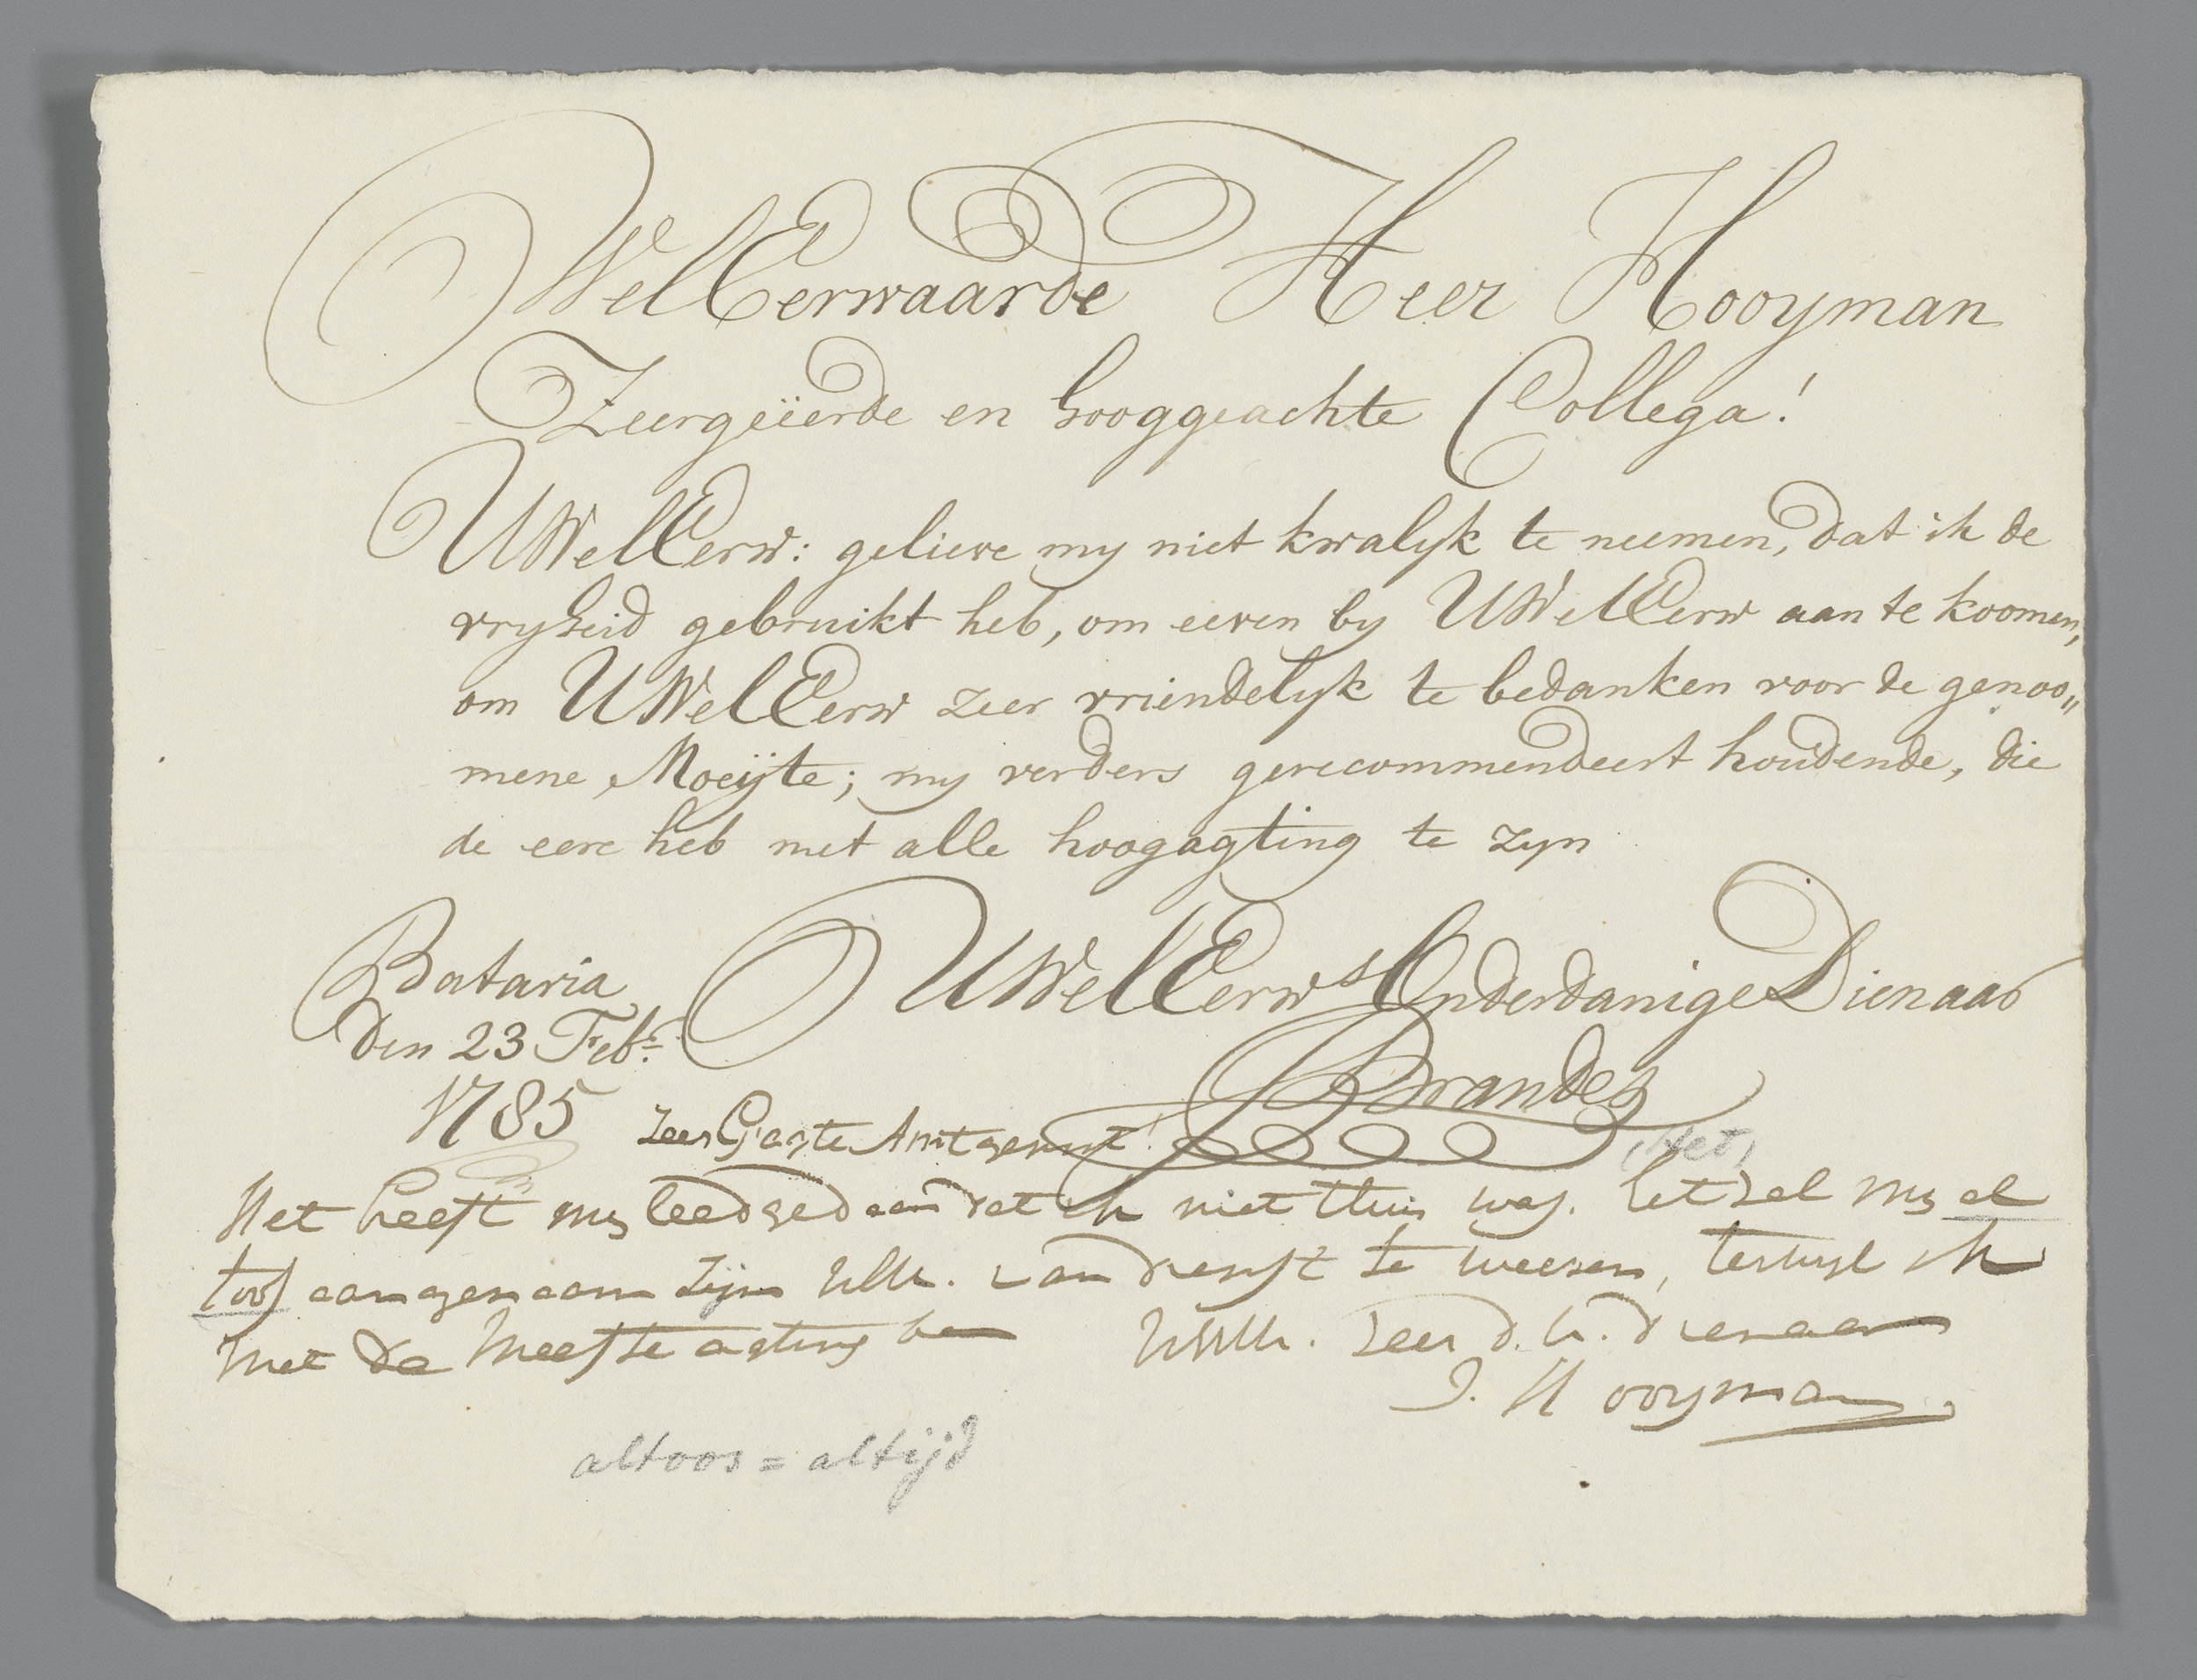 WelEerwaarde Heer Hooyman
Zeergeëerde en hooggeachte Collega!
UWelEerw: gelieve my niet kwalyk te neemen, dat ik de
vryheid gebruikt heb, om eeven by UWelEerw aan te koomen,
om UWelEerw zeer vriendelyk te bedanken voor de genoo„
mene Moeÿte; my verders gerecommendeert houdende, die
de eere heb met alle hoogagting te zyn
Batavia UWelEerws Onderdanige Dienaar
den 23 Febr:
JBrandes
1785 Zeer Geagte Amtgenoot!
(Het)
Het heeft my leed gedaan dat ik niet thuis was. het zal my al
toos aangenaam zijn UWE. van dienst te weesen, terwyl ik
met de meeste agting ben UWE. zeer d.w. dienaar
J. Hooyman.
altoos = altijd